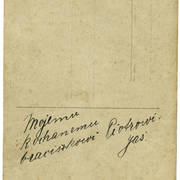 Mojemu
kochanemu
braciszkowi Piotrowi
Jaś